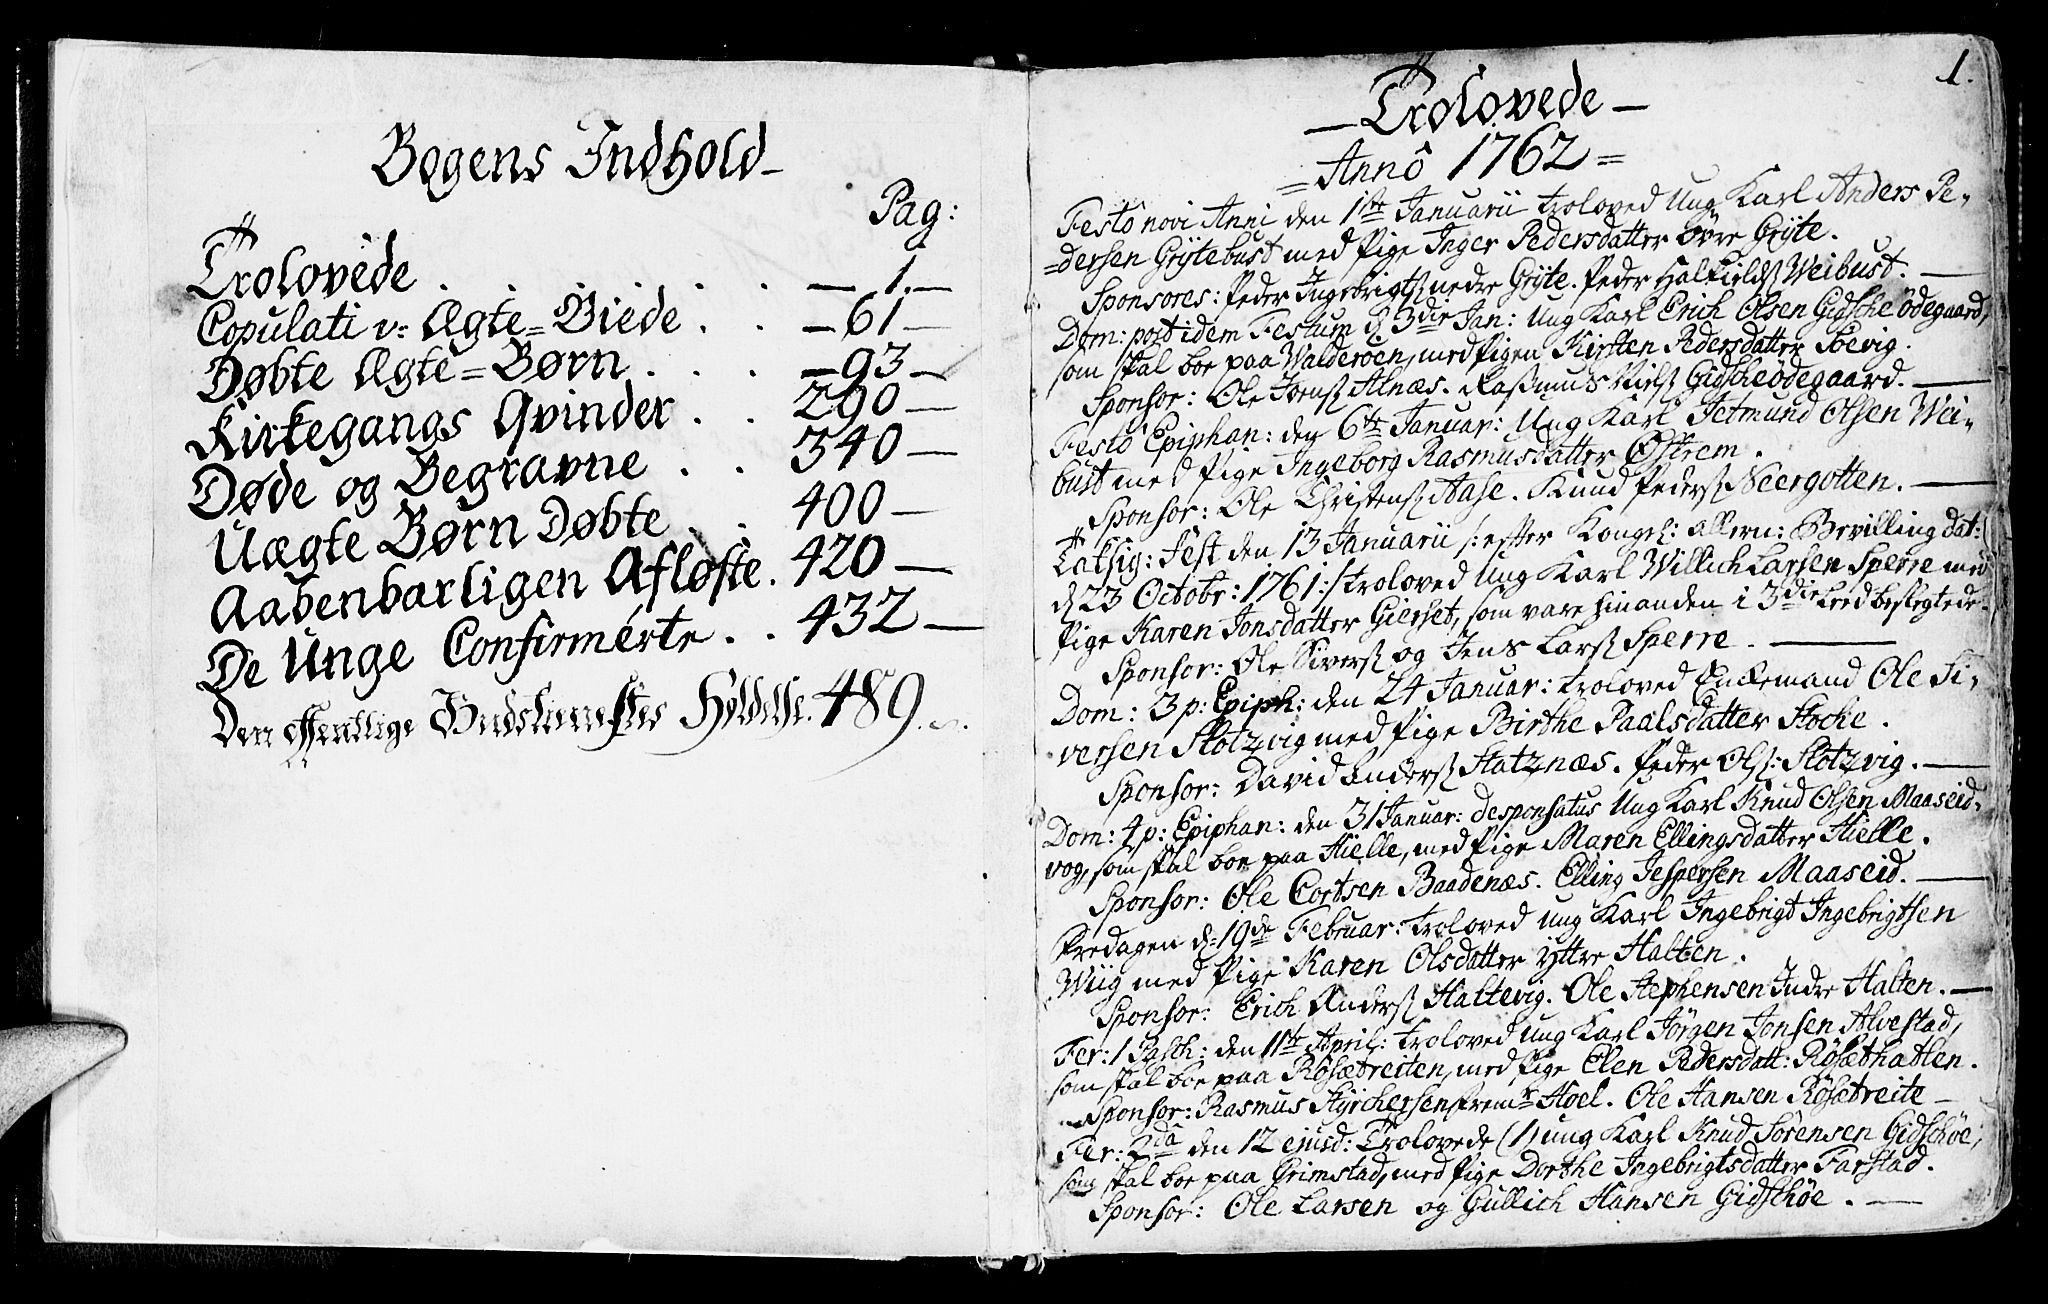 Bogens Indhold
Pag:
Trolovede . . . . . — 1. —
Copulati v: Ægte=Viede . . — 61 —
Døbte Ægte=Børn . . . — 93 —
Kirkegangs Qvinder . . 290 —
Døde og Begravne . . 340 —
Uægte Børn Døbte . . 400 —
Aabenbarligen Afløste . 420 —
De Unge Confirmérte . . 432 —
Den offentlige Gudstienestes Holdelse. 489.
1.
— Trolovede —
= Annô 1762 =
Festô novi Anni den 1ste Januarii troloved Ung Karl Anders Pe-
=dersen Grÿtebust med Pige Inger Pedersdatter övre Grÿte.
Sponsores: Peder Ingebrigts. nedre Grÿte. Peder Halkields. Weibust. —
Dom: post idem Festum d. 3die Jan: Ung Karl Erich Olsen Gidsche ödegaard,
som skal boe paa Walderöen, med Pigen Kirsten Pedersdatter Soevig.
Sponsor: Ole Jens. Alnæs. Rasmus Niels. Gidscheödegaard. —
Festô Epiphan: den 6te Januar: Ung Karl Jetmund Olsen Wei-
bust med Pige Ingeborg Rasmusdatter Østrem.
Sponsor: Ole Christens. Aase. Knud Peders. Neergotten. —
Tatsig: Fest den 13 Januarii /: efter Kongel: allern: Bevilling dat:
d. 23 Octobr: 1761 :/ troloved Ung Karl Willich Larsen Sperre med
Pige Karen Jonsdatter Gierset, som vare hinanden i 3die Leed beslegtede.
Sponsor: Ole Sivers. og Jens Lars. Sperre. —
Dom: 3 p: Epiph: den 24 Januar: troloved Enkemand Ole Si-
versen Slotzvig med Pige Birthe Paalsdatter Stocke.
Sponsor: David Anders. Statznæs. Peder Ols: Slotzvig. —
Dom: 4 p: Epiphan: den 31 Januar: desponsatus Ung Karl Knud Olsen Maaseid-
vog, som skal boe paa Hielle, med Pige Maren Ellingsdatter Hielle.
Sponsor: Ole Cortsen Baadenæs. Elling Jespersen Maaseid. —
Fredagen d: 19de Februar: troloved ung Karl Ingebrigt Ingebrigtsen
Wiig med Pige Karen Olsdatter ÿttre Halten.
Sponsor: Erich Anders. Haltevig. Ole Stephensen Indre Halten. —
Fer: 1 Pasch: den 11te April: troloved Ung Karl Jörgen Jonsen Alvestad,
som skal boe paa Rösætreiten, med Pige Elen Pedersdatt: Rösæthatlen.
Sponsor: Rasmus Stÿrchersen frem: Hoel. Ole Hansen Rösætreite —
Fer: 2da den 12 ejusd: Trolovede (1) ung Karl Knud Sörensen Gidschöe,
som skal boe paa Grimstad, med Pige Dorthe Ingebrigtsdatter Farstad.
Sponsor: Ole Larsen og Gullich Hansen Gidschöe. —